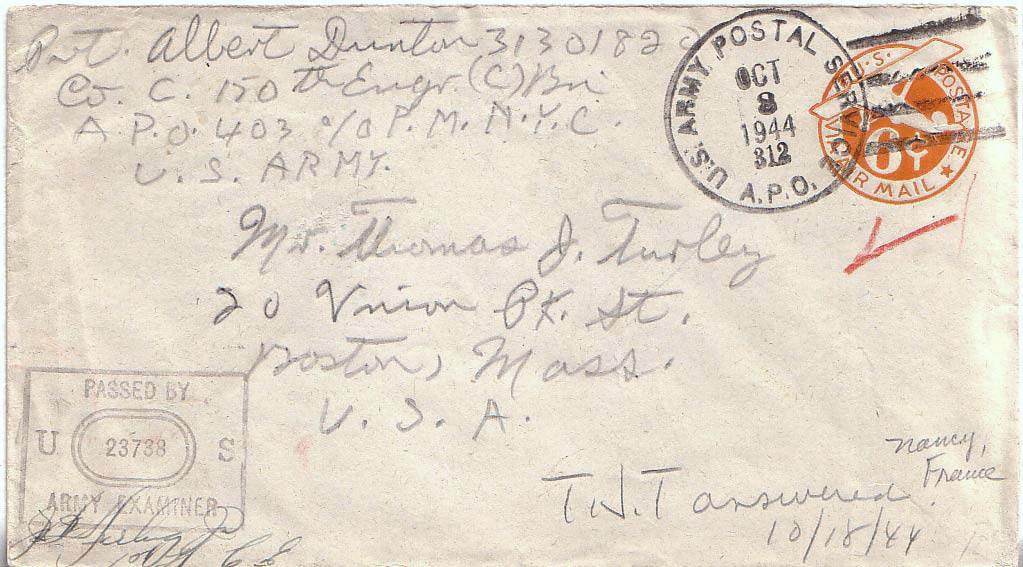 Pvt. Albert Dunton 31301820
Co. C. 150th Engr. (C) Bn
A.P.O. 403 c/o P.M. N.Y.C.
U. S. ARMY.
U.S. ARMY POSTAL SERVICE
OCT
8
1944
312
A.P.O.
U.S. POSTAGE
6¢
AIR MAIL
Mr. Thomas J. Turley
20 Union Pk. St.
Boston, Mass.
U. S. A.
PASSED BY
U 23738 S
ARMY EXAMINER
Nancy,
France
T.J.T answered
10/18/44